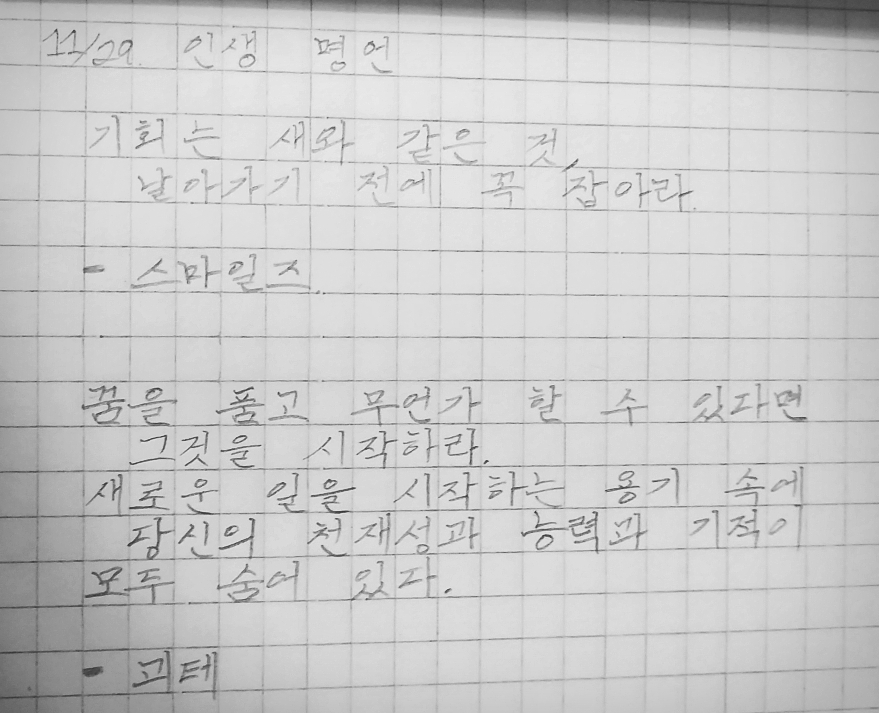 11/29. 인생 명언
기회는 새와 같은 것,
날아가기 전에 꼭 잡아라.
- 스마일즈.
꿈을 품고 무언가 할 수 있다면
그것을 시작하라.
새로운 일을 시작하는 용기 속에
당신의 천재성과 능력과 기적이
모두 숨어 있다.
- 괴테